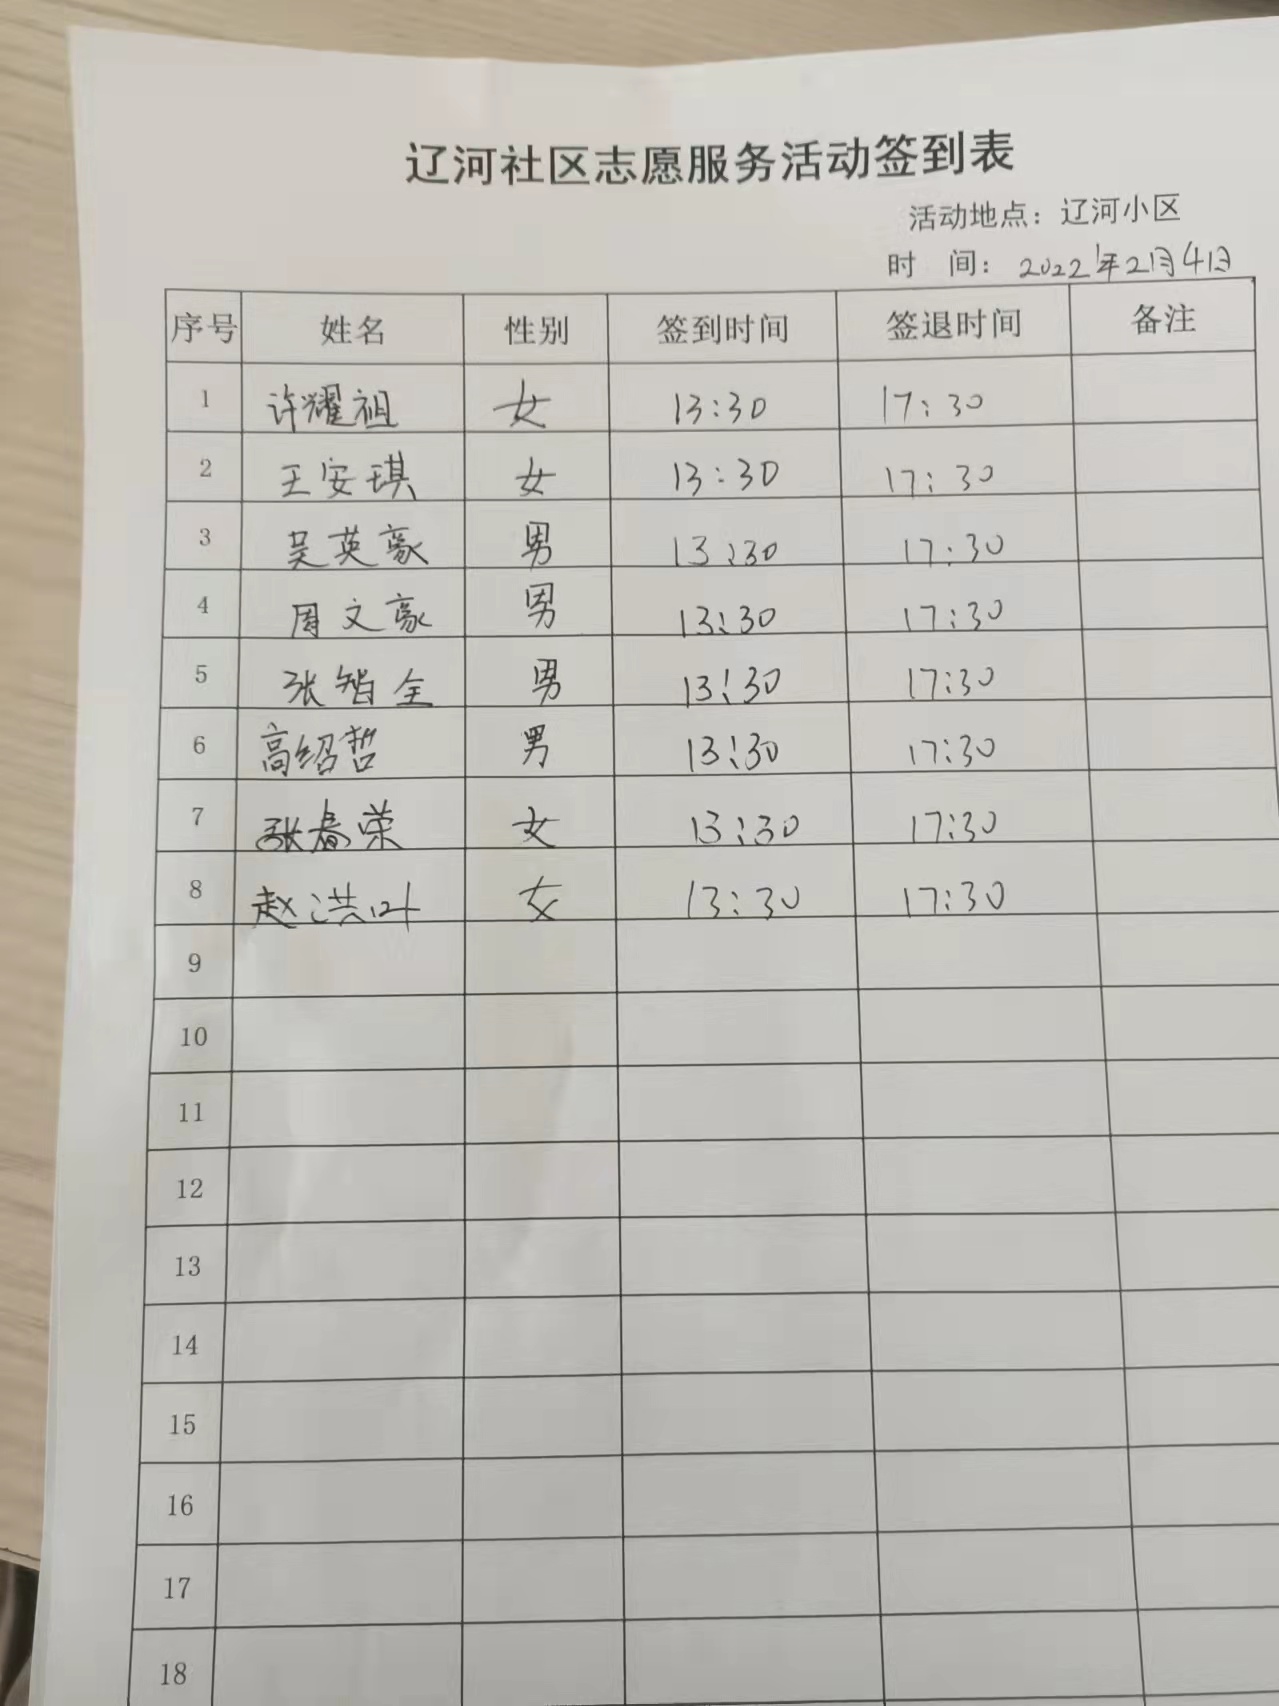 辽河社区志愿服务活动签到表
活动地点：辽河小区
时 间：2022年2月4日
序号 姓名 性别 签到时间 签退时间 备注
1 许耀祖 女 13:30 17:30
2 王安琪 女 13:30 17:30
3 吴英豪 男 13:30 17:30
4 周文豪 男 13:30 17:30
5 张智全 男 13:30 17:30
6 高绍哲 男 13:30 17:30
7 张春荣 女 13:30 17:30
8 赵洪叶 女 13:30 17:30
9
10
11
12
13
14
15
16
17
18